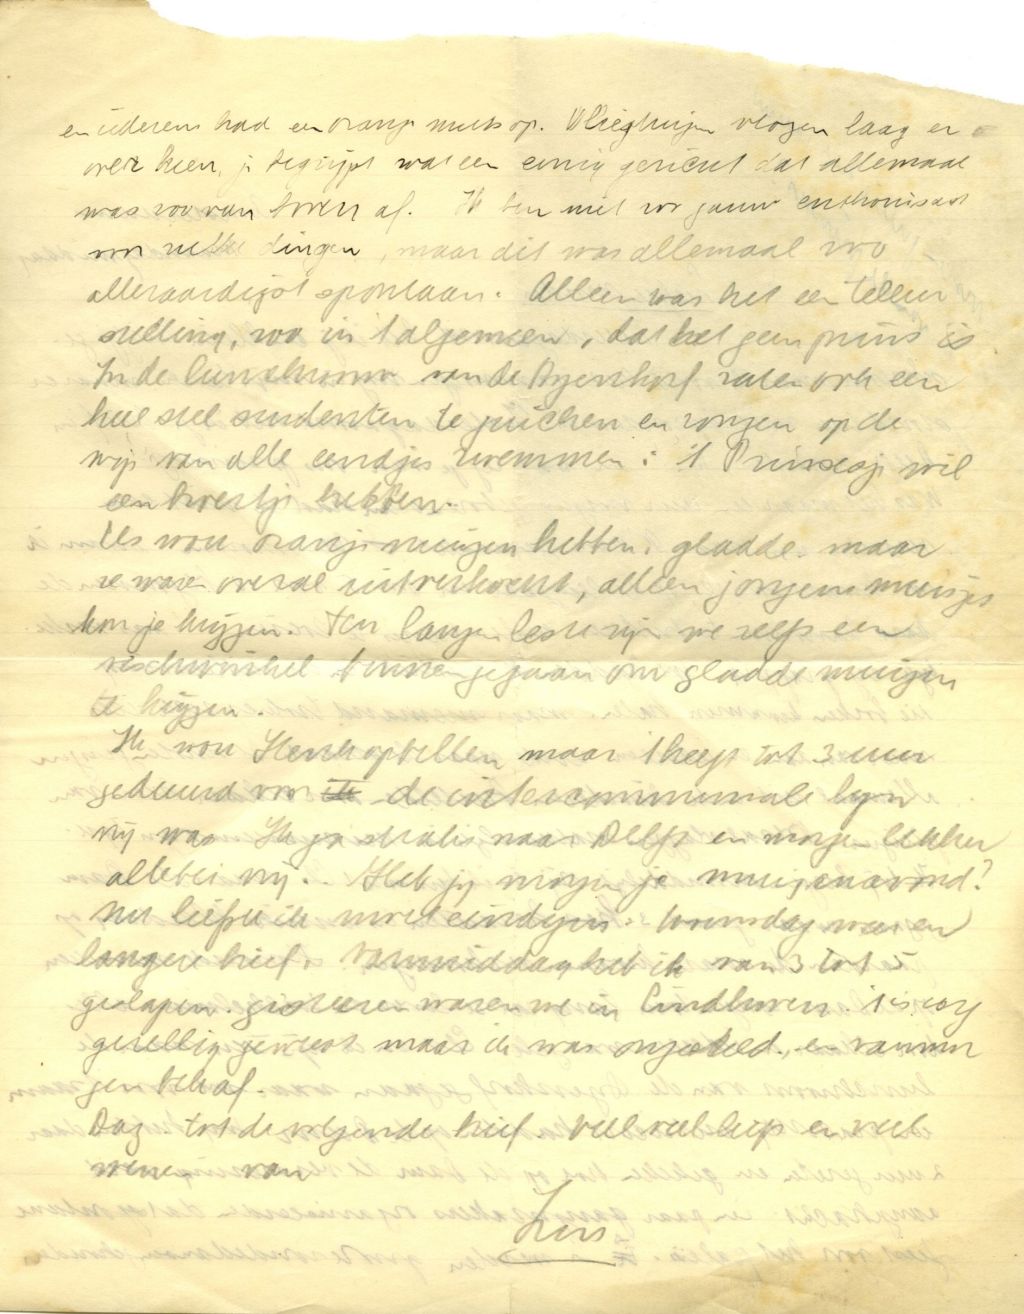 en iedereen had een oranje muts op. Vliegtuigen vlogen laag er
over heen, je begrijpt wat een eenig gezicht dat allemaal
was zoo van boven af. Ik ben niet zoo gauw enthousiast
voor zulke dingen, maar dit was allemaal zoo
alleraardigst spontaan. Alleen was het een teleur
stelling, zoo in 't algemeen, dat het geen prins is
In de lunchroom van de Byenkorf zaten ook een
heel stel studenten te juichen en zongen op de
wijs van alle eendjes zwemmen: 't Prinsesje wil
een broertje hebben.
Els wou oranje mutsjen hebben, gladde. maar
ze waren overal uitverkocht, alleen jongens mutsjes
kon je krijgen. Ten langen leste zijn we zelfs een
vischwinkel binnengegaan om gladde mutsjen
te krijgen.
Ik wou Henk opbellen maar 't heeft tot 3 uur
geduurd voor de intercommunale lyn
vrij was Ik ga straks naar Delft en morgen lekker
allebei vrij. Heb jij morgen je avond?
Nu liefste ik moet eindigen. Woensdag weer een
langere brief. Vanmiddag heb ik van 3 tot 5
geslapen. gisteren waren we in Eindhoven. 't is erg
gezellig geweest maar ik was en vanmor
gen bekaf.
Dag. tot de volgende brief veel veel liefs en veel
van
Zus